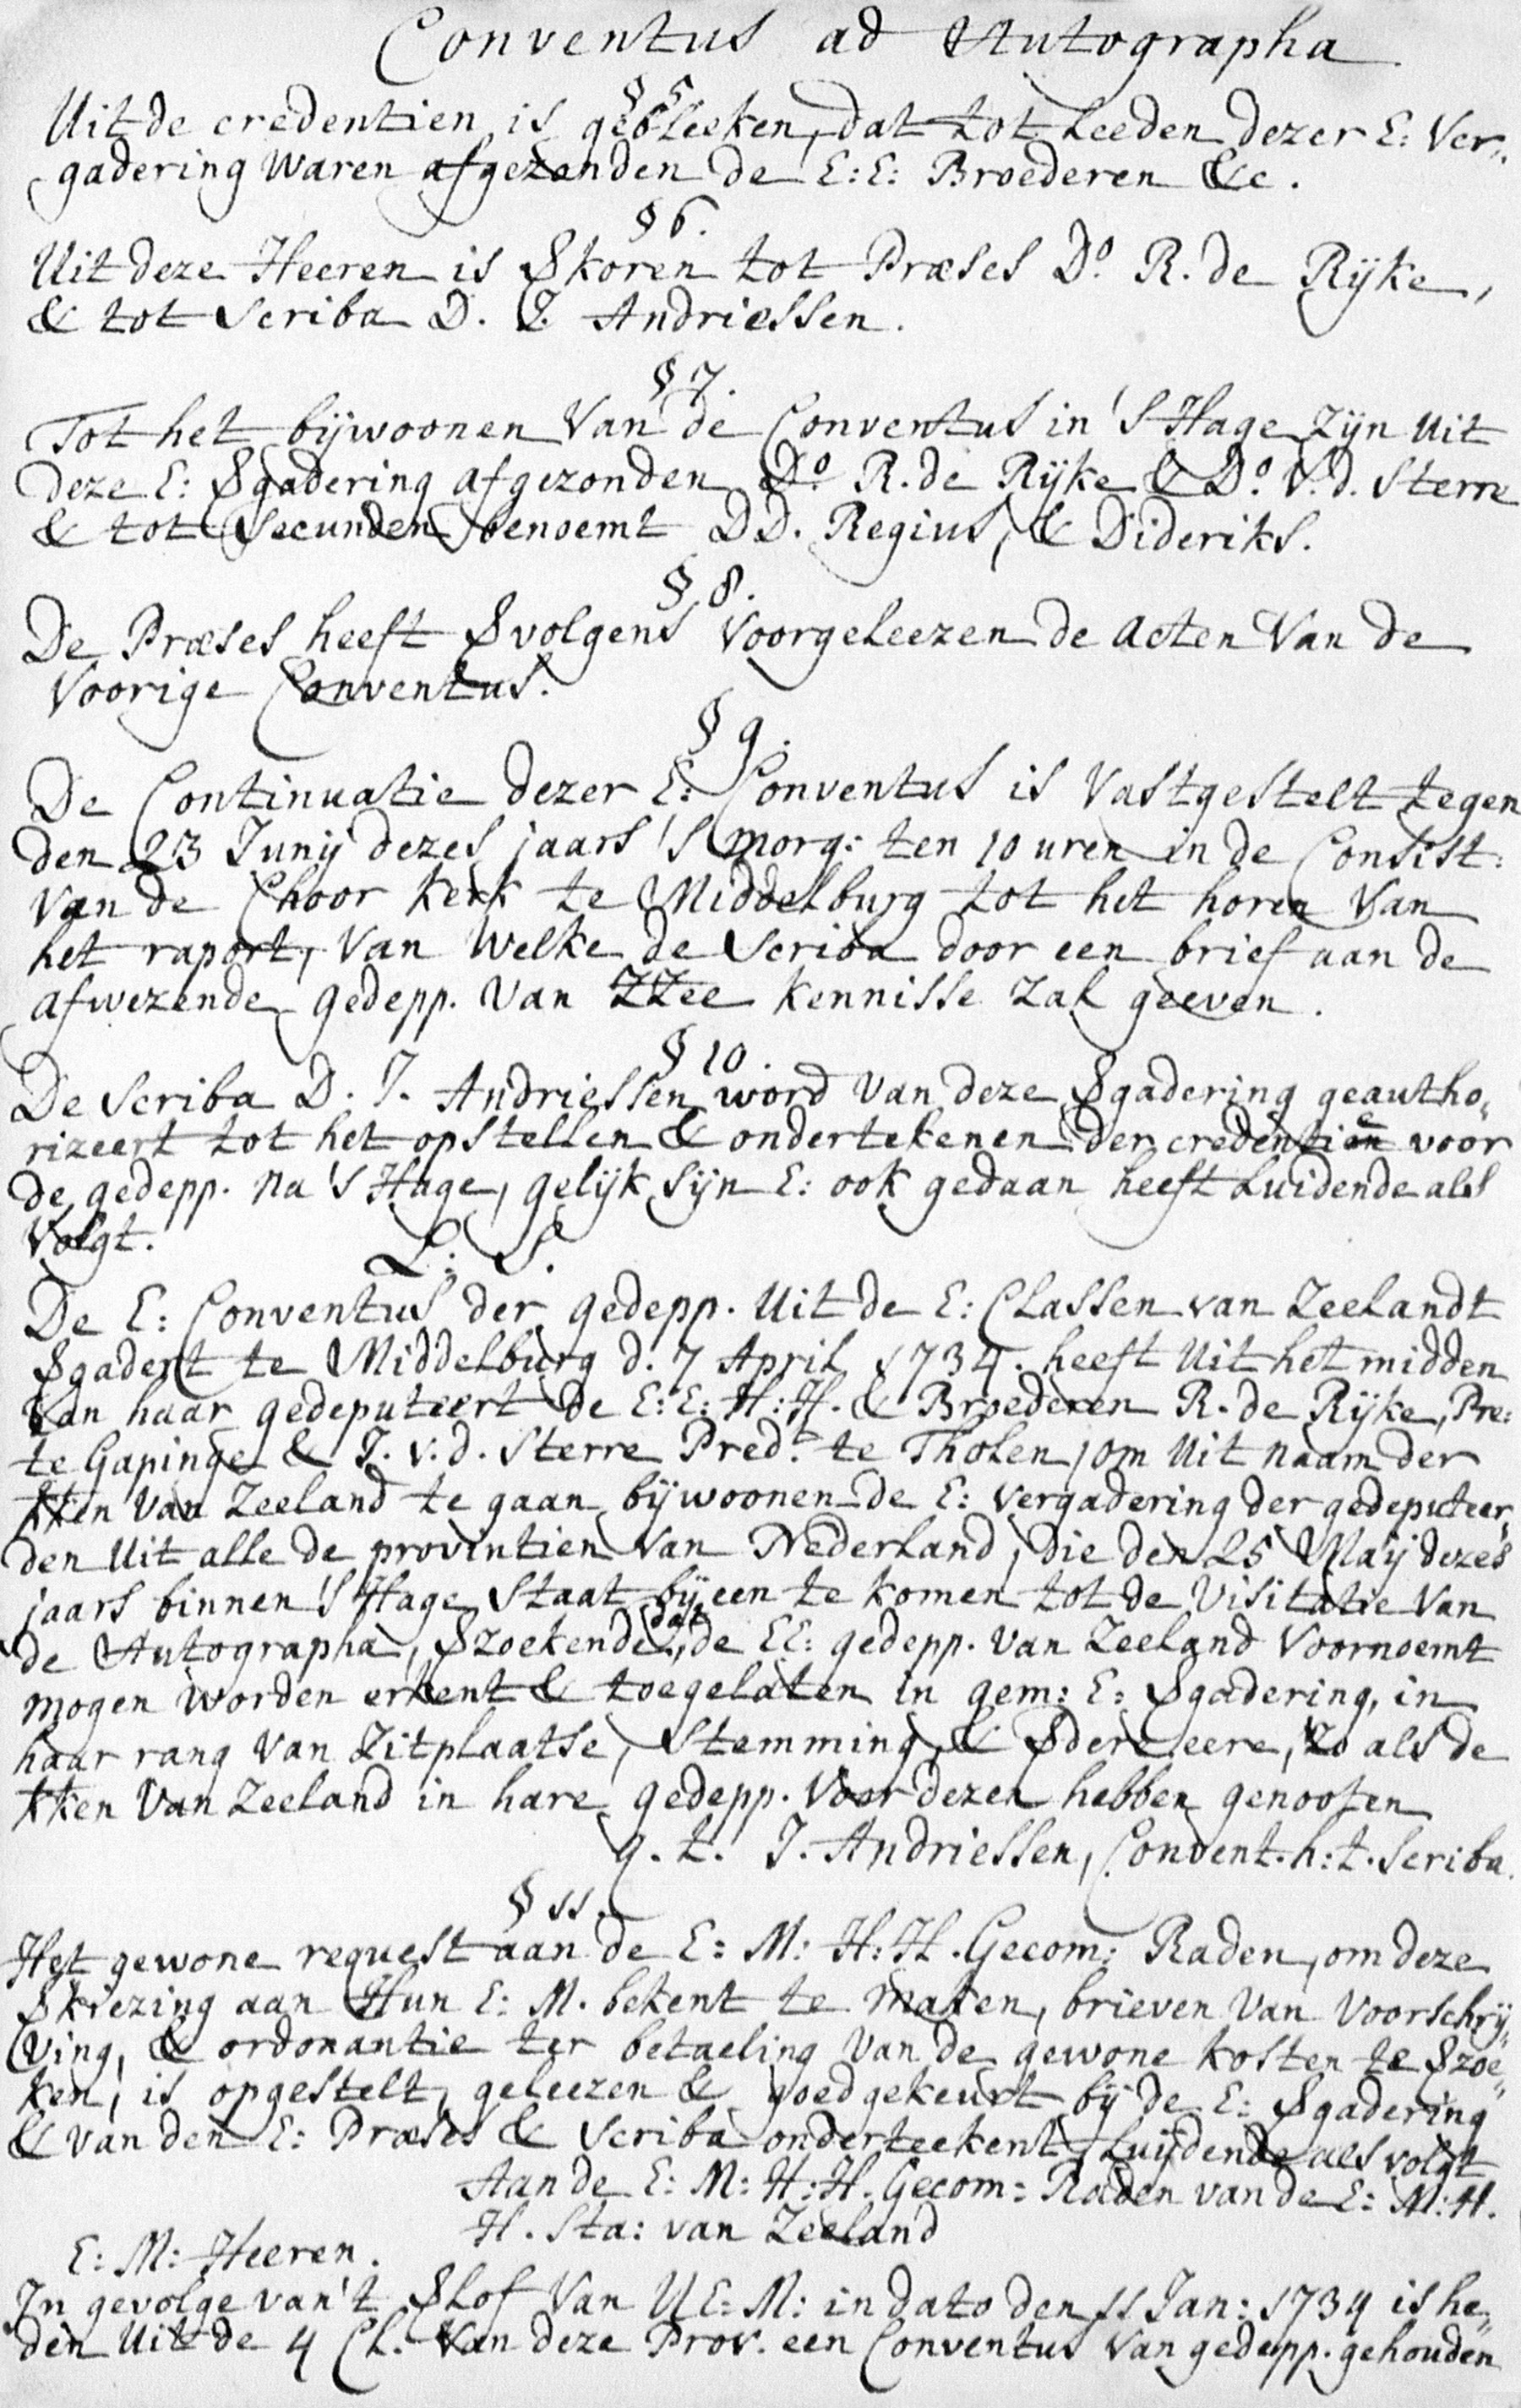 Conventus ad Autographa
§ 5
Uit de credentien is gebleeken, dat tot Leeden dezer E: Ver„
gadering waren afgezonden de E:E: Broederen &c.
§ 6.
Uit deze Heeren is §koren tot Præses D.º R. de Rijke,
& tot Scriba D. J. Andriessen.
§ 7.
Tot het bijwoonen Van de Conventus in 'S Hage zijn uit
deze E: §gadering afgezonden D.º R. de Rijke & D.º V. d. Sterre
& tot Secunden benoemt DD. Regius, & Dideriks.
§ 8.
De Præses heeft §volgens voorgeleezen de acten Van de
Voorige Conventus.
§ 9.
De Continuatie dezer E: Conventus is Vastgestelt tegen
den 23 Junij dezes jaars 's morg: ten 10 uren in de Consist:
Van de Choor kerk te Middelburg tot het horen Van
het raport, Van welke de Scriba door een brief aan de
afwezende gedepp. Van ZZee kennisse zal geeven.
§ 10.
De Scriba D. J. Andriessen word Van deze §gadering geautho„
rizeert tot het opstellen & ondertekenen der credentien voor
de gedepp. na 'S Hage, gelijk sijn E: ook gedaan heeft Luidende als
Volgt.
L. S.
De E: Conventus der gedepp. Uit de E: Classen van Zeelandt
§gadert te Middelburg d. 7 April 1734. heeft Uit het midden
Van haar gedeputeert de E:E: H:H. & Broederen R. de Rijke, Pre:
te Gapinge & J. v. d. Sterre Pred.t te Tholen, om Uit naam der
kken Van Zeeland te gaan bijwoonen de E: vergadering der gedeputeer„
den Uit alle de provintien Van Nederland, die den 25 Maij dezes
jaars binnen 'S Hage Staat bij een te komen tot de Visitatie Van
de Autographa, §zoekende, dat de EE: gedepp. Van Zeeland Voornoemt
mogen worden erkent & toegelaten in gem: E: §gadering, in
haar rang Van Zitplaatse, Stemming, & §dere eere, zo als de
kken Van Zeeland in hare gedepp. Voor dezen hebben genooten
q. t. J. Andriessen, Convent. h: t. Scriba.
§ 11.
Het gewone request aan de E: M: H:H. Gecom: Raden, om deze
§kiezing aan Hun E: M. bekent te maken, brieven Van Voorschrij„
ving, & ordonantie ter betaeling Van de gewone kosten te §zoe„
ken, is opgestelt, geleezen & goedgekeurt bij de E: §gadering
& van den E: Præses & Scriba onderteekent, Luijdende als volgt
Aan de E: M: H:H. Gecom: Raden van de E: M: H.
H. Sta: van Zeeland
E: M: Heeren.
In gevolge van 't §Lof Van UE: M: in dato den 11 Jan: 1734 is he„
den Uit de 4 Cl. Van deze Prov. een Conventus Van gedepp. gehouden